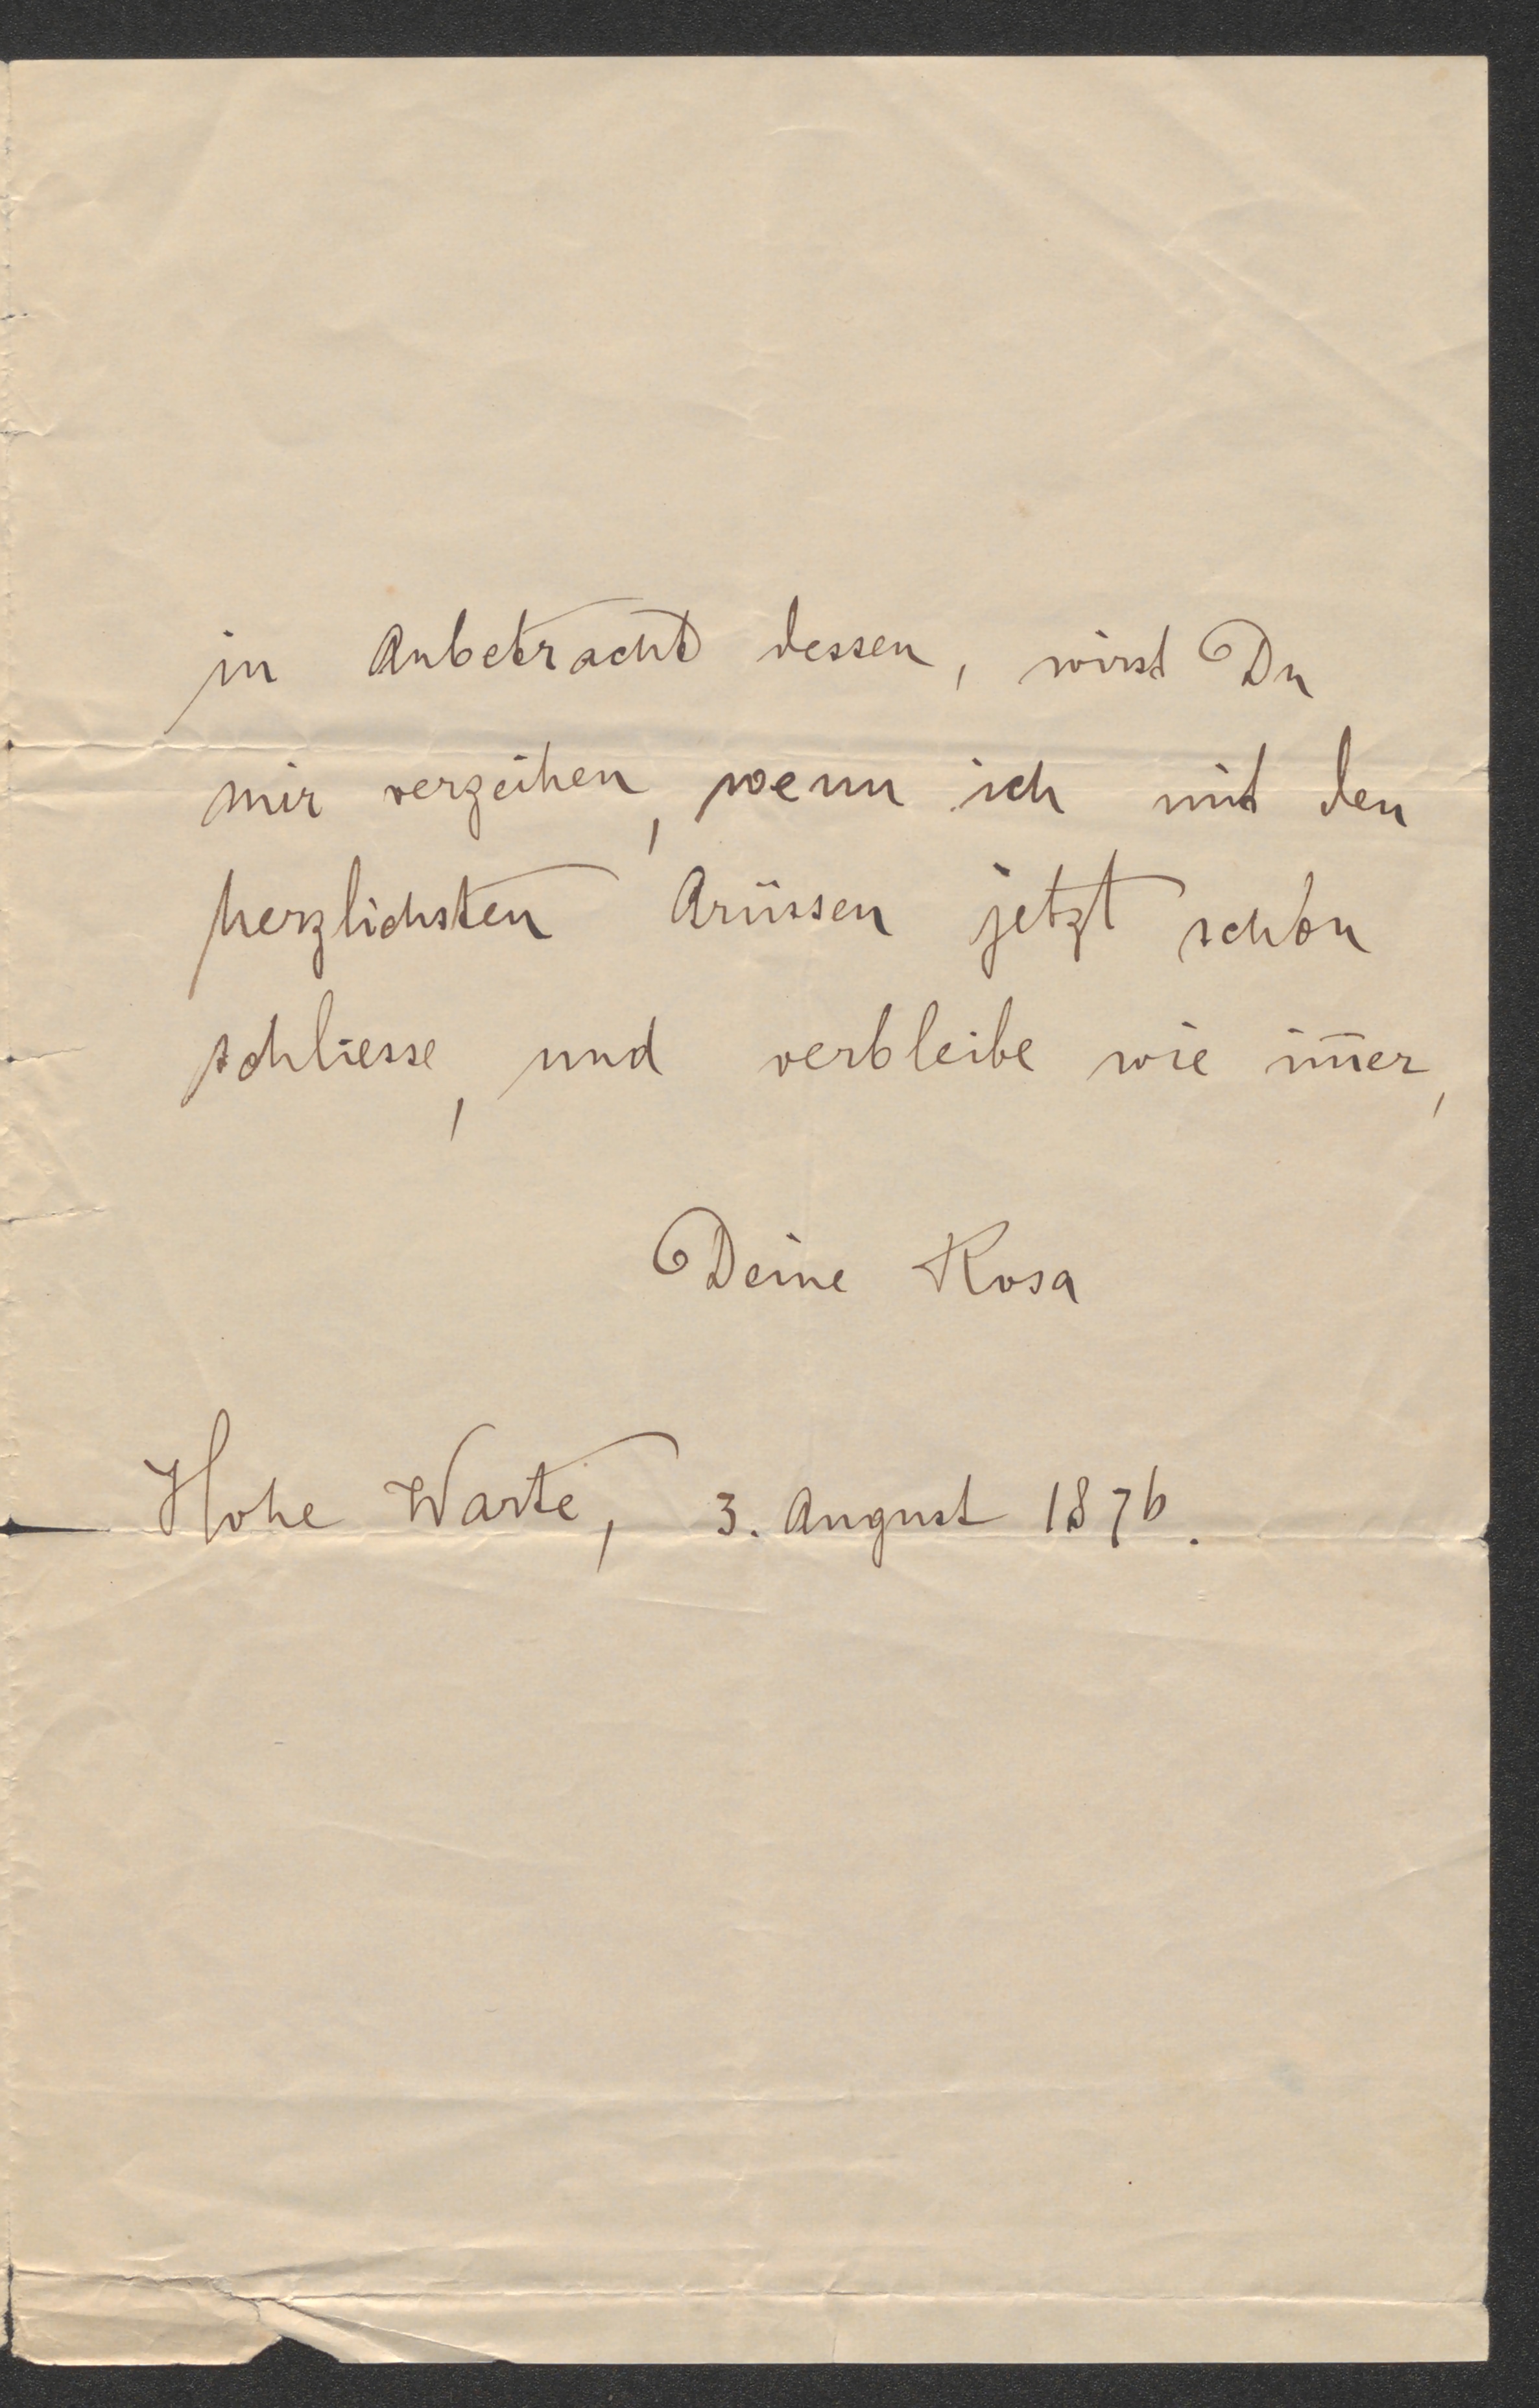 in Anbetracht dessen, wirst Du
mir verzeihen, wenn ich mit den
herzlichsten Grüssen jetzt schon
schliesse, und verbleibe wie im̅er,
Deine Rosa
Hohe Warte, 3. August 1876.